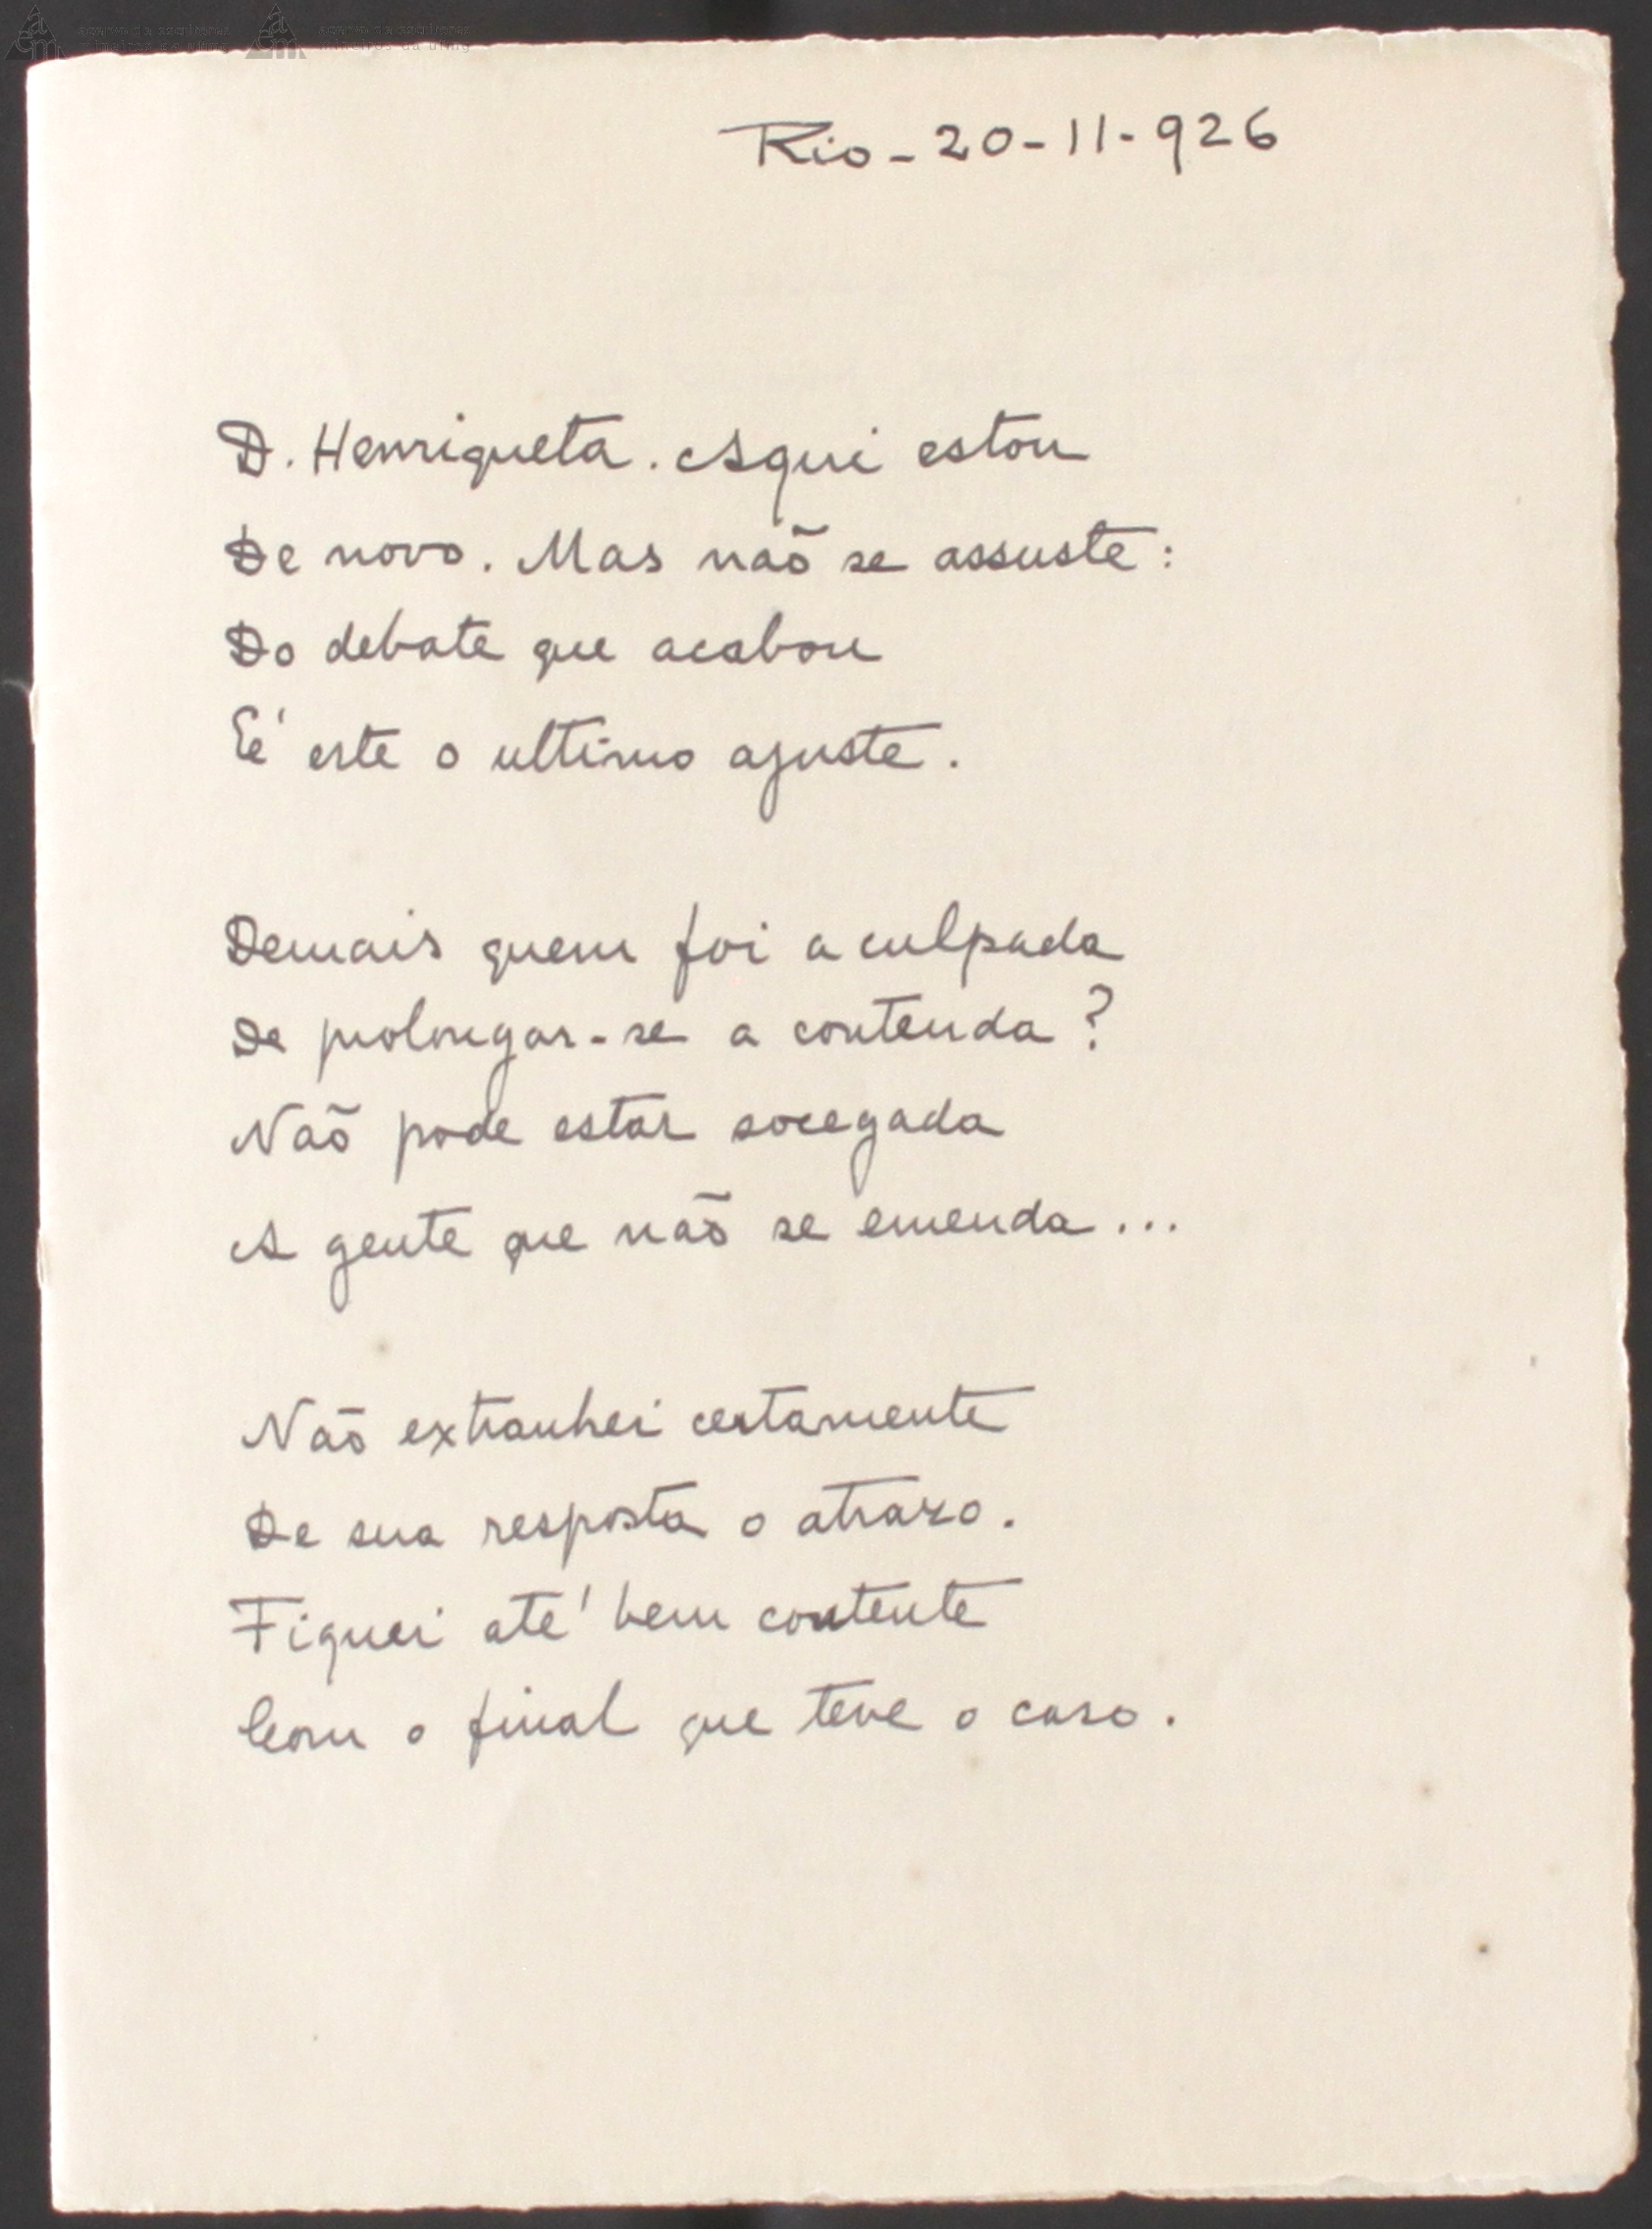 Rio - 20 - 11 - 926
D. Henriqueta. Aqui estou
De novo. Mas não se assuste:
Do debate que acabou
É este o ultimo ajuste.
Demais quem foi a culpada
De prolongar-se a contenda?
Não pode estar socegada
A gente que não se emenda...
Não extranhei certamente
De sua resposta o atrazo.
Fiquei até bem contente
Com o final que teve o caso.